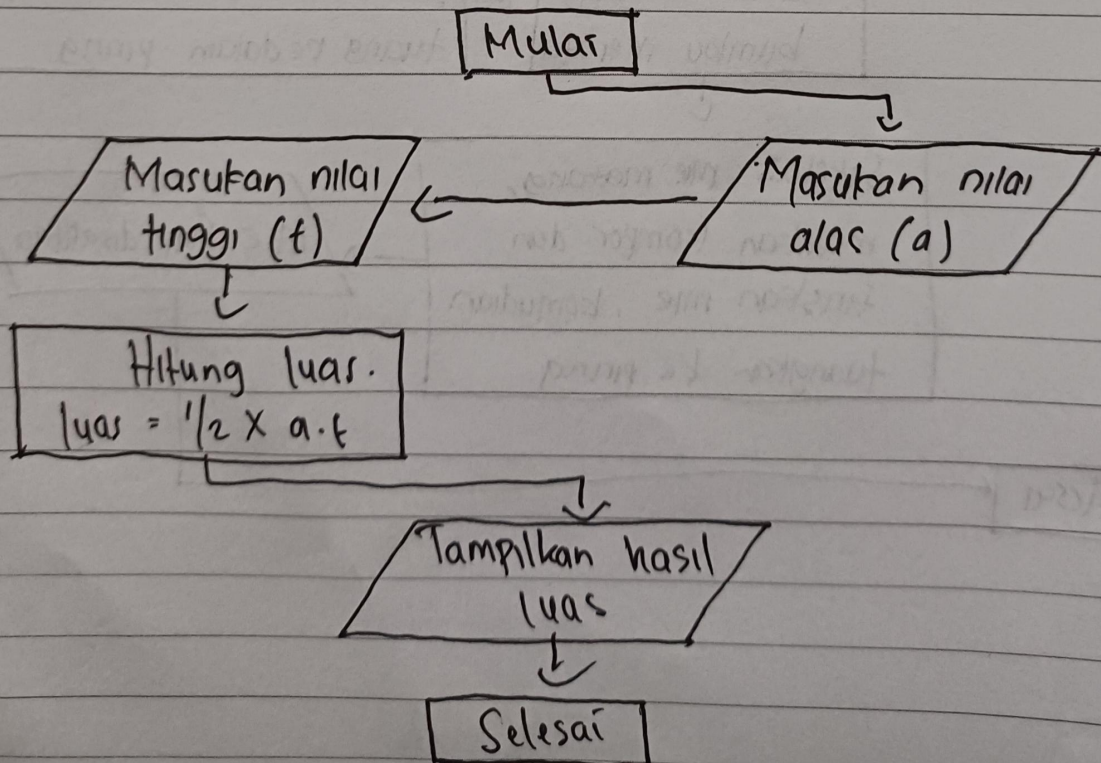 Mulai
Masukan nilai
alas (a)
Masukan nilai
tinggi (t)
Hitung luas.
luas = 1/2 X a.t
Tampilkan hasil
luas
Selesai